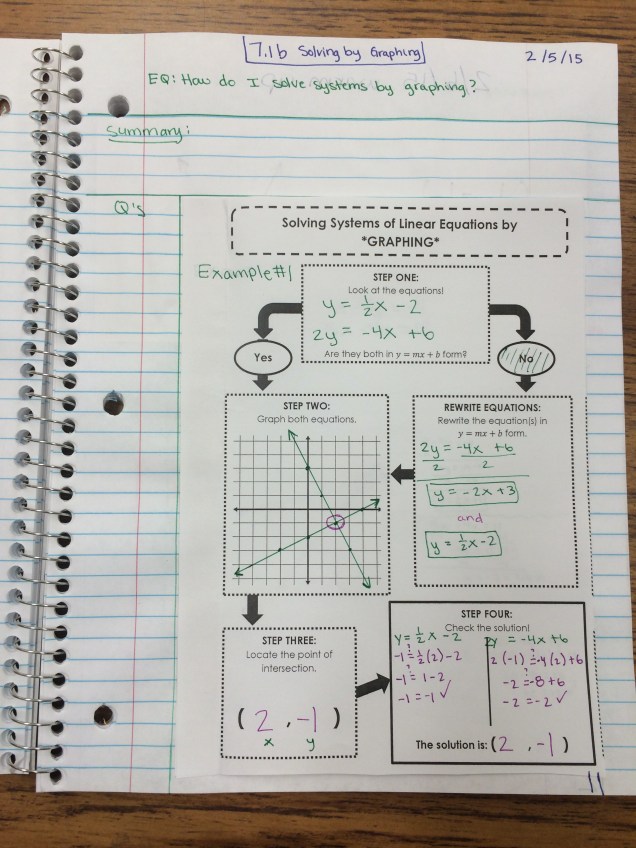 7.1b Solving by Graphing
2/5/15
EQ: How do I solve systems by graphing?
Summary:
Q's
Solving Systems of Linear Equations by
*GRAPHING*
Example #1
STEP ONE:
Look at the equations!
y = 1/2x - 2
2y = -4x + 6
Are they both in y = mx + b form?
Yes
No
STEP TWO:
Graph both equations.
REWRITE EQUATIONS:
Rewrite the equation(s) in
y = mx + b form.
2y = -4x + 6
2 2
y = -2x + 3
and
y = 1/2x - 2
STEP THREE:
Locate the point of
intersection.
(2, -1)
x y
STEP FOUR:
Check the solution!
y = 1/2x - 2
-1 ?= 1/2(2) - 2
-1 ?= 1 - 2
-1 = -1 ✓
2y = -4x + 6
2(-1) ?= -4(2) + 6
-2 ?= -8 + 6
-2 = -2 ✓
The solution is: (2, -1)
11